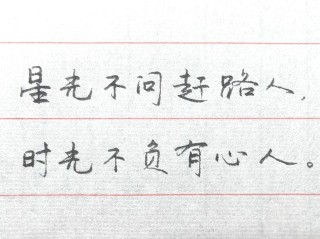 星光不问赶路人,
时光不负有心人。